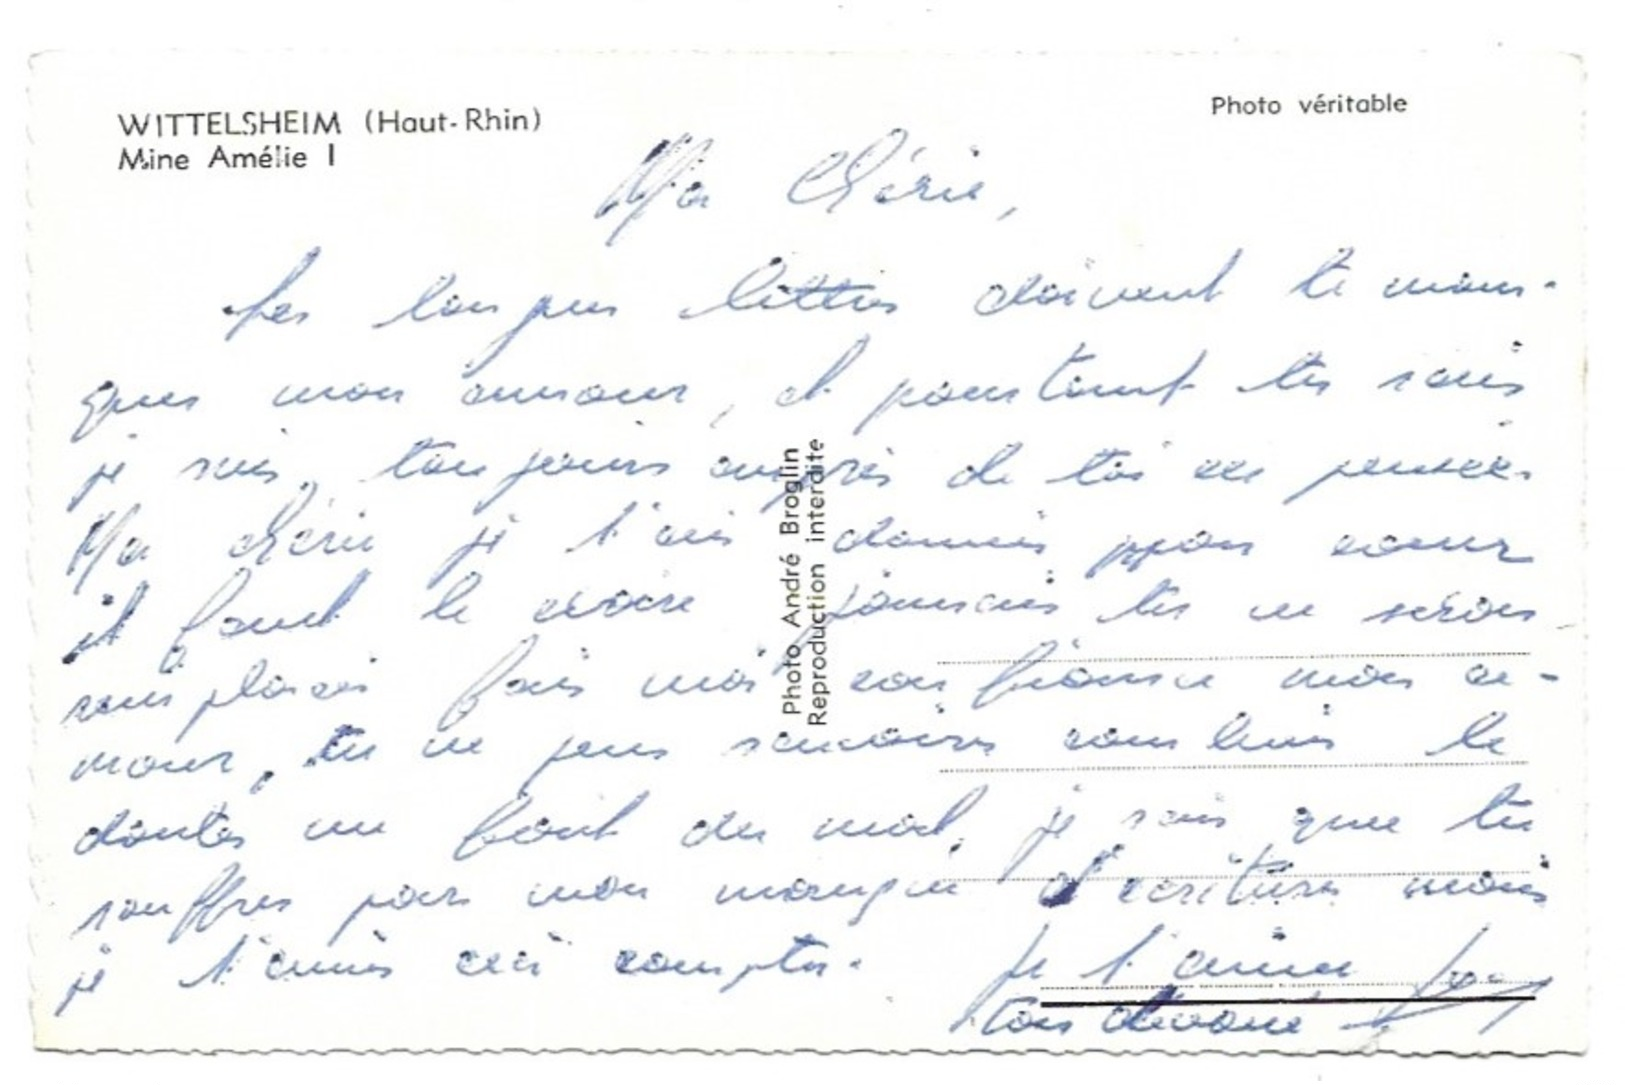 WITTELSHEIM (Haut-Rhin)
Mine Amélie I
Photo véritable
Ma Chérie,
Les longues lettres doivent te man-
quer mon amour, et pourtant tu sais
je suis, toujours auprès de toi en pensées
Ma chérie je t'ais donnés mon coeur
il faut le croire jamais tu ne seras
remplacer fais moi confiance mon a-
mour, tu ne peus savoir combien le
doutes me fait du mal, je sais que tu
souffres par mon manque d'écriture mais
je t'aimes ceci compte.
Je t'aime
ton dévoué
Photo André Broglin
Reproduction interdite